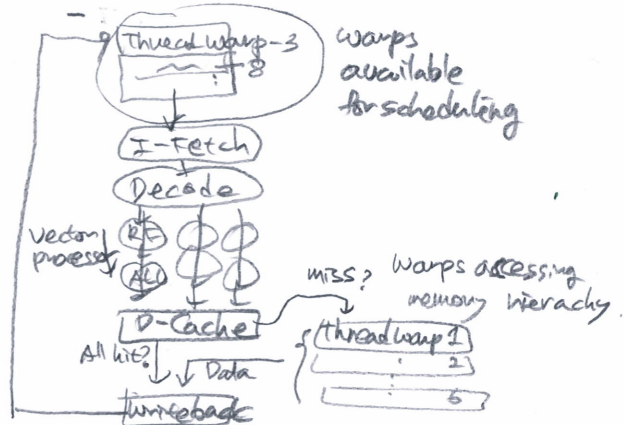 Thread Warp-3
8
warps
available
for scheduling
I-Fetch
Decode
Vector
processor
RF
ALU
miss?
Warps accessing
memory hierachy.
D-Cache
Thread warp 1
2
All hit?
Data
6
Writeback